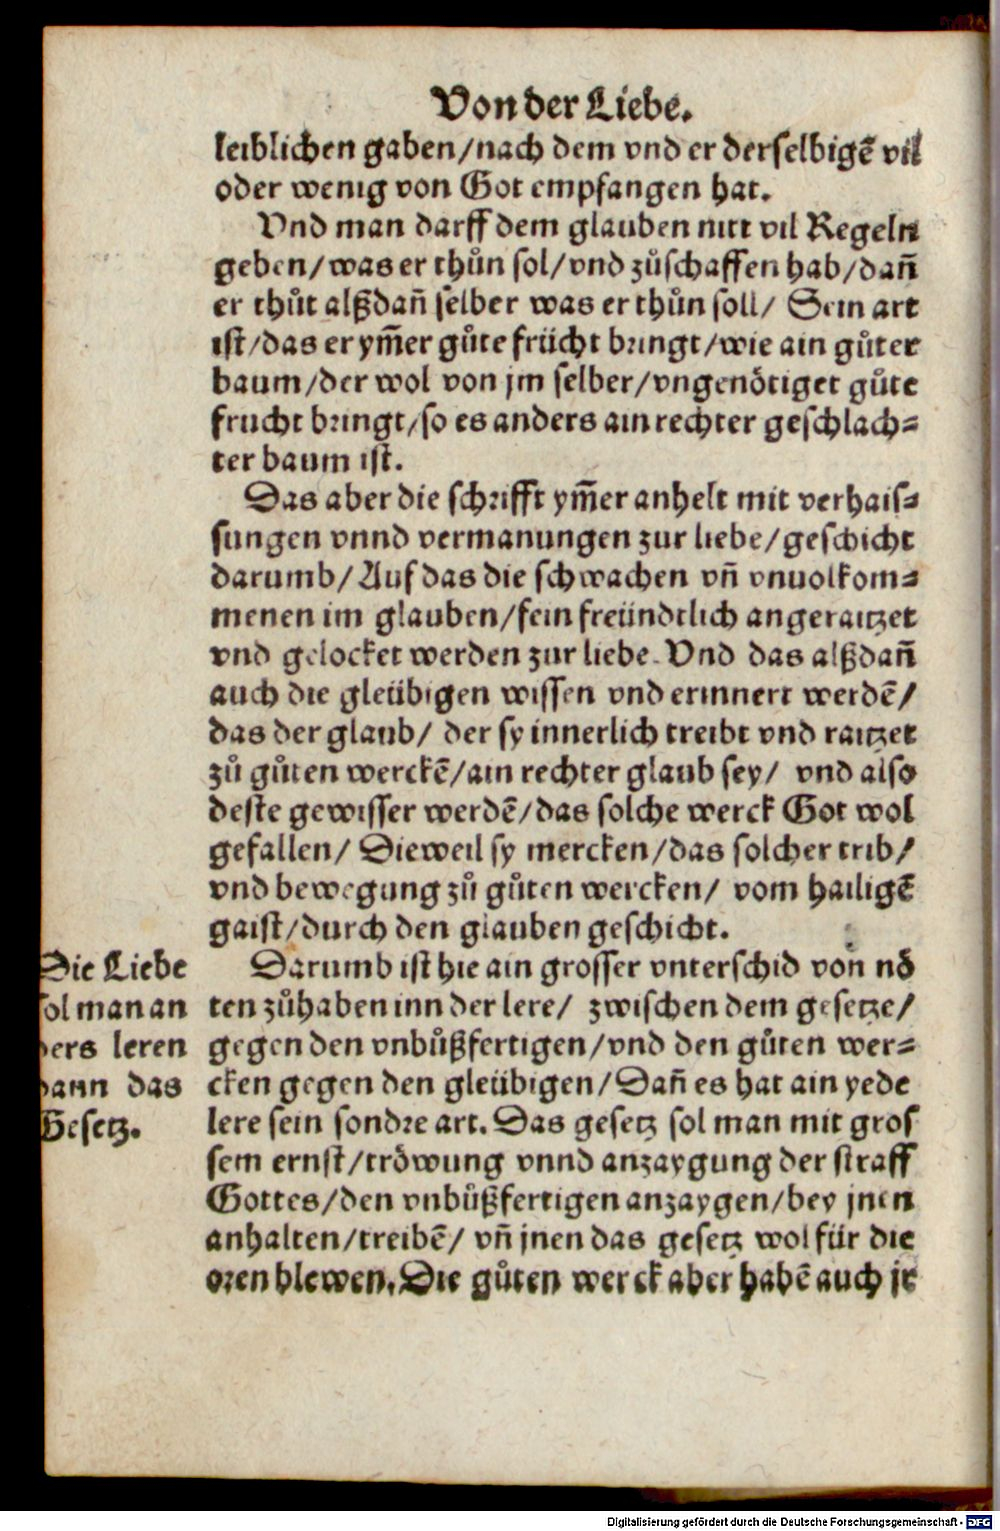 Von der Liebe.
leiblichen gaben/nach dem vnd er derselbigẽ vil
oder wenig von Got empfangen hat.
Vnd man darff dem glauben nitt vil Regeln
geben/was er thůn sol/vnd zůschaffen hab/dañ
er thůt alßdañ selber was er thůn soll/ Sein art
ist/das er ym̃er gůte frücht bringt/wie ain gůter
baum/der wol von jm selber/vngenötiget gůte
frucht bringt/so es anders ain rechter geschlach⸗
ter baum ist.
Das aber die schrifft ym̃er anhelt mit verhais⸗
sungen vnnd vermanungen zur liebe/geschicht
darumb/Auf das die schwachen vñ vnuolkom⸗
menen im glauben/fein freündtlich angeraitzet
vnd gelocket werden zur liebe. Vnd das alßdañ
auch die gleübigen wissen vnd erinnert werdẽ/
das der glaub/ der sy innerlich treibt vnd raitzet
zů gůten werckẽ/ain rechter glaub sey/ vnd also
deste gewisser werdẽ/das solche werck Got wol
gefallen/ Dieweil sy mercken/das solcher trib/
vnd bewegung zů gůten wercken/ vom hailigẽ
gaist/durch den glauben geschicht.
Die Liebe
sol man an
ders leren
dann das
Gesetz.
Darumb ist hie ain grosser vnterschid von nö
ten zůhaben inn der lere/ zwischen dem gesetze/
gegen den vnbůßfertigen/vnd den gůten wer⸗
cken gegen den gleübigen/Dañ es hat ain yede
lere sein sondre art. Das gesetz sol man mit gros
sem ernst/tröwung vnnd anzaygung der straff
Gottes/den vnbůßfertigen anzaygen/bey jnen
anhalten/treibẽ/ vñ jnen das gesetz wol für die
oren blewen. Die gůten werck aber habẽ auch jr
Digitalisierung gefördert durch die Deutsche Forschungsgemeinschaft - DFG